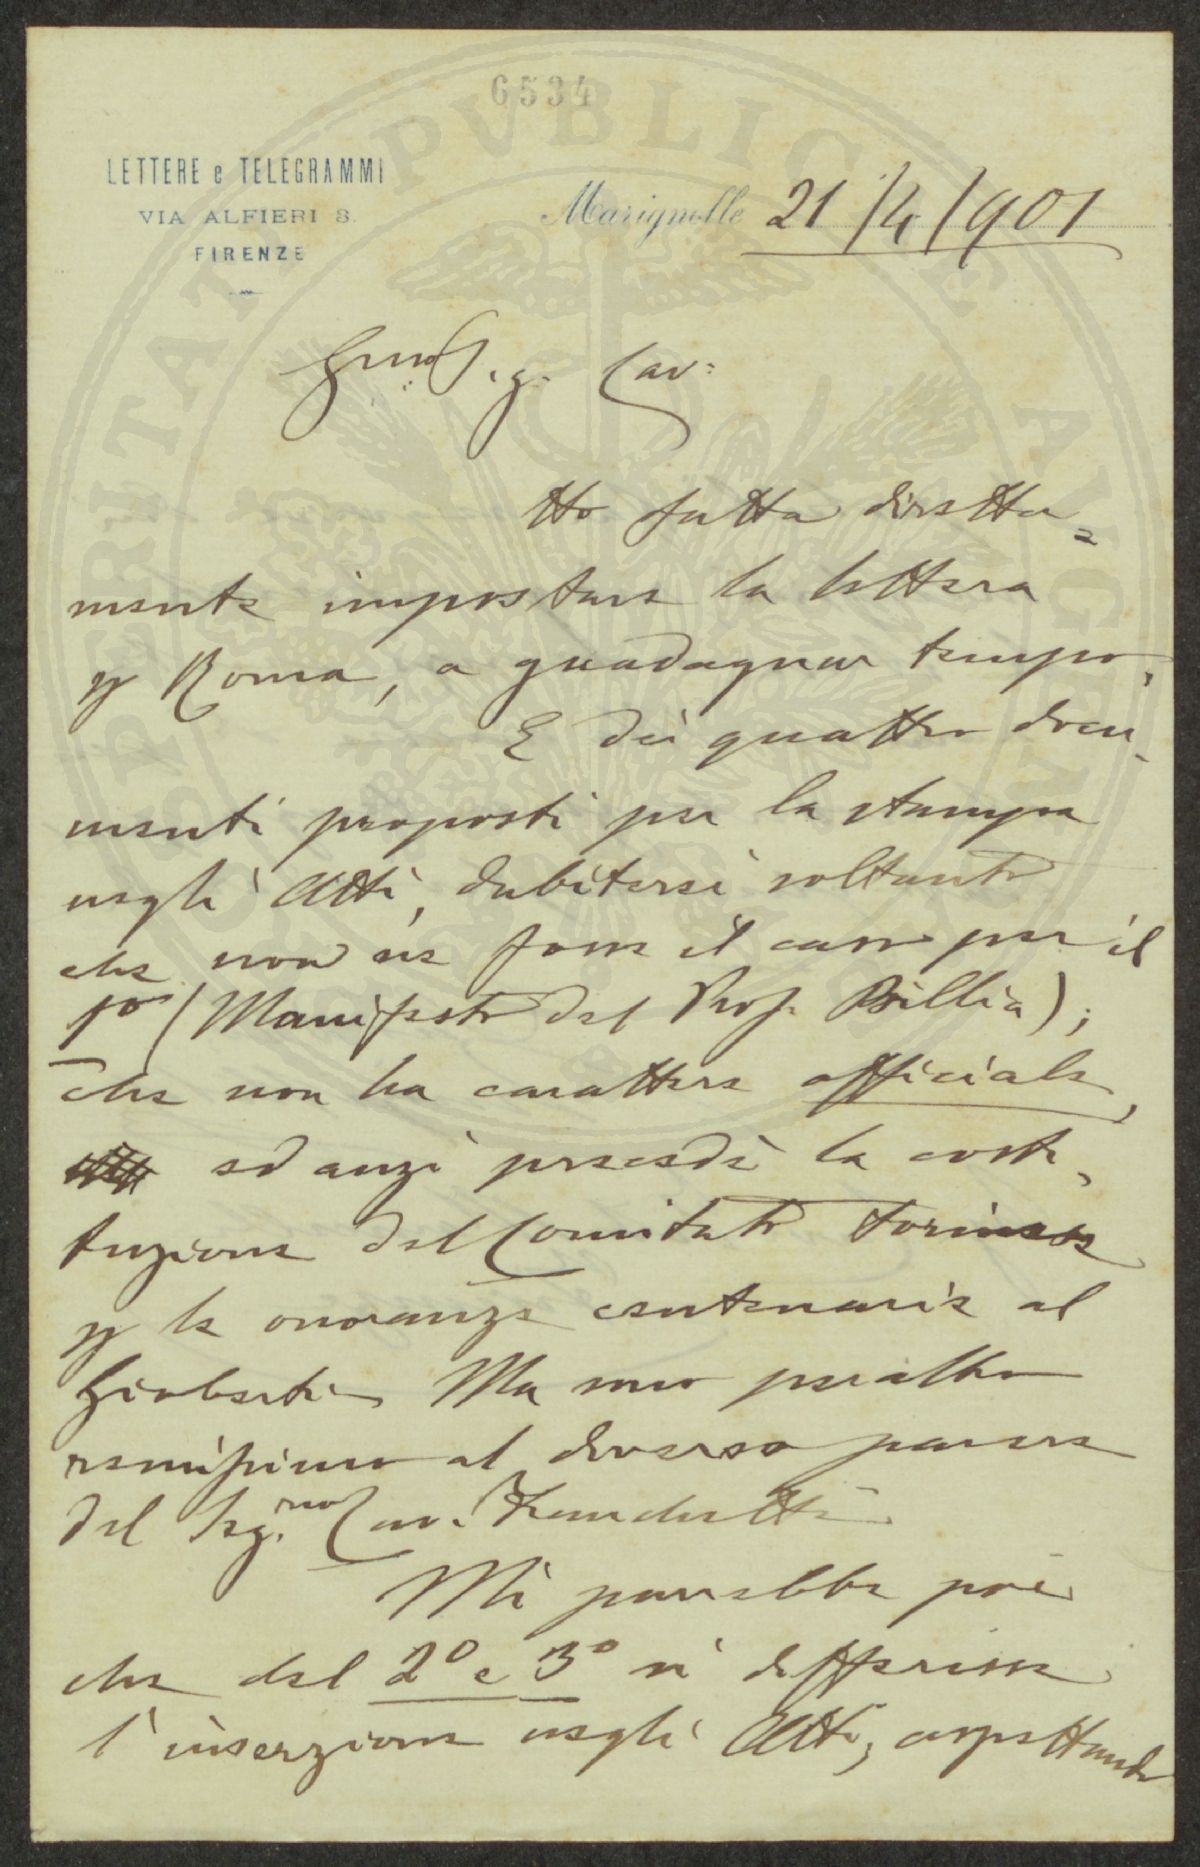 6534
LETTERE e TELEGRAMMI
VIA ALFIERI 8.
FIRENZE
Marignolle 21/4/901
Sig. Cav:
Ho fatta diretta=
mente impostare la lettera
p Roma, a guadagnar tempo.
E dei quattro docu-
menti proposti per la stampa
negli Atti, dubiterei soltanto
che non ne fosse il caso per il
1º (Manifesto del Prof. Billia);
che non ha carattere officiale,
ed anzi precedè la costi-
tuzione del Comitato torinese
p le onoranze centenarie al
Gioberti. Ma sono peraltro
remissivo al diverso parere
del Seg.rio Cav.
Mi parrebbe poi
che del 2º e 3º si differisse
l'inserzione negli Atti, aspettando
PERITAT PVBLICE AVGEN